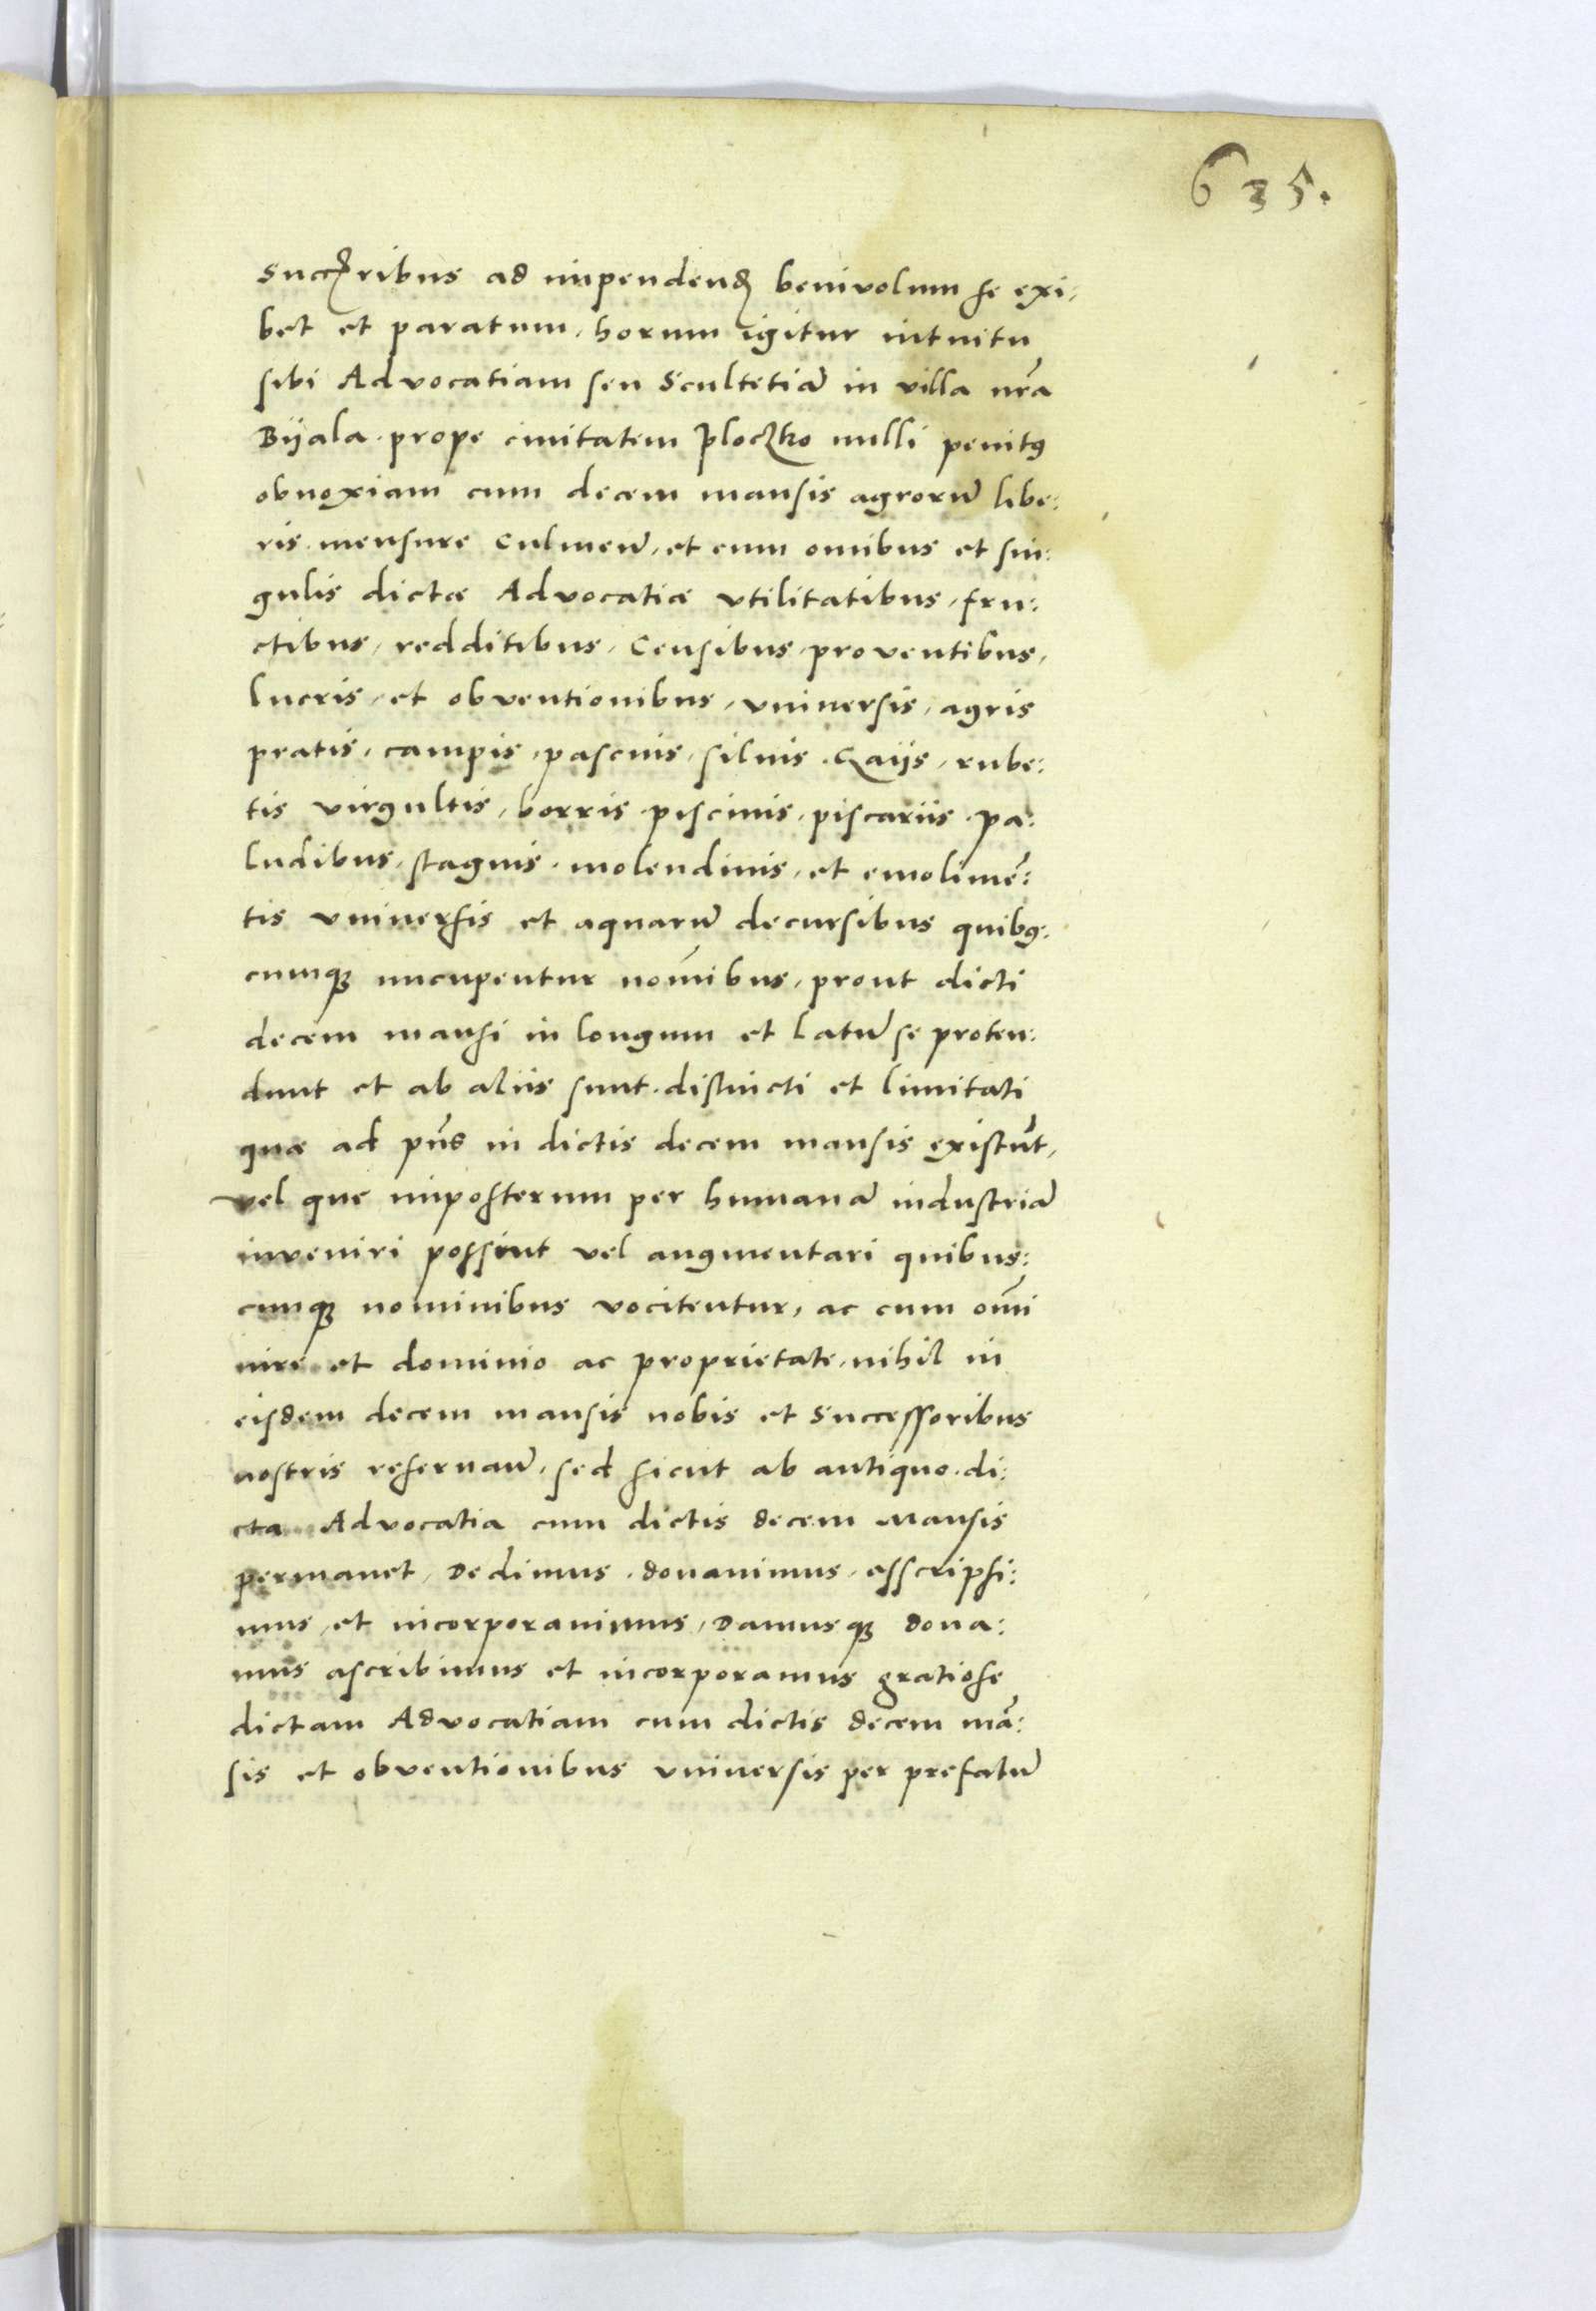 635.
Succꝑribus ad impendendꝫ benivolum se exi-
bet et paratum, horum igitur intuitu
sibi Advocatiam seu Scultetiā in villa nr̄a
Bÿala prope civitatem Ploczko nulli penitꝰ
obnoxiam cum decem mansis agrorū libe:
ris mensure Culmeñ, et cum omibus et sin:
gulis dictæ Advocatiæ utilitatibus, fru:
ctibus, redditibus, Censibus, proventibus,
lucris, et obventionibus, universis, agris
pratis, campis, pascuis, siluis, Gaijs, rube:
tis virgultis, borris piscinis, piscariis, pa:
ludibus, stagnis, molendinis, et emolimē:
tis universis et aquarū decursibus quibꝰ:
cumqꝫ nucupentur nom̄ibus, prout dicti
decem mansi in longum et latū se proten:
dunt et ab aliis sunt distincti et limitati
quæ ad pn̄s in dictis decem mansis existūt,
vel que imposterum per humanā industriā
inveniri possint vel augmentari quibus:
cunqꝫ nominibus vocitentur, ac cum om̄i
iure et dominio ac proprietate, nihil in
eisdem decem mansis nobis et Successoribus
nostris reseruañ, sed sicut ab antiquo di:
cta Advocatia cum dictis decem Mansis
permanet, Dedimus, donavimus, asscripsi:
mus, et incorporavimus, Damusqꝫ dona:
mus ascribimus et incorporamus gratiose
dictam Advocatiam cum dictis decem mā:
sis et obventionibus universis per prefatū